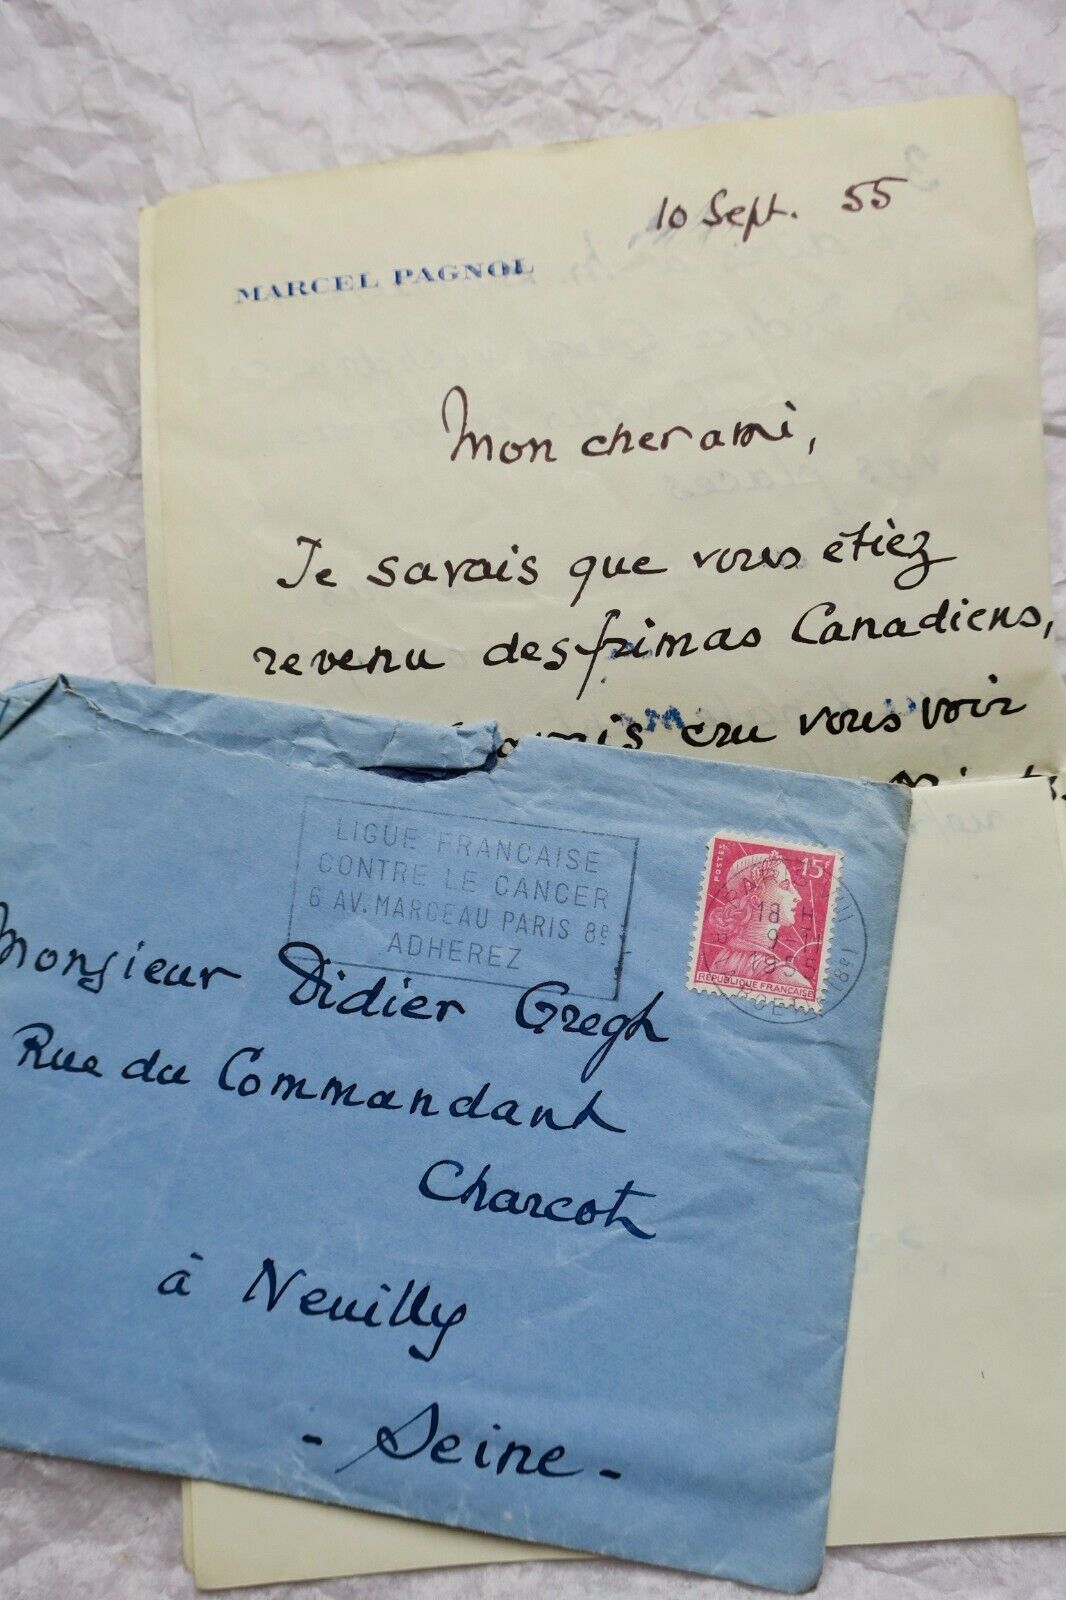 10 Sept. 55
MARCEL PAGNOL
Mon cher ami,
Je savais que vous étiez
revenu des frimas Canadiens,
cru vous voir
LIGUE FRANCAISE
CONTRE LE CANCER
6 AV. MARCEAU PARIS 8e
ADHEREZ
POSTES
15F
REPUBLIQUE FRANCAISE
18 H
9-
1955
Monsieur Didier Gregh
Rue du Commandant
Charcot
à Neuilly
- Seine -